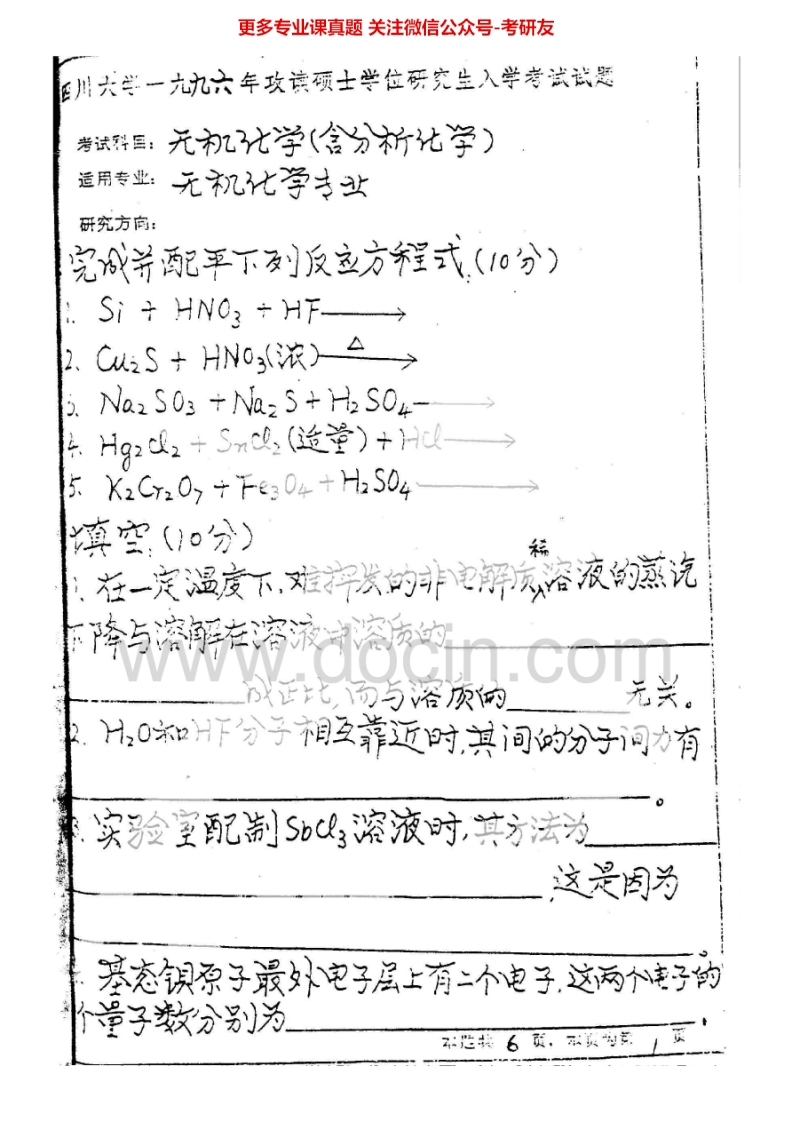 更多专业课真题 关注微信公众号-考研友
四川大学一九九六年攻读硕士学位研究生入学考试试题
考试科目: 无机化学(含分析化学)
适用专业: 无机化学专业
研究方向:
完成并配平下列反应方程式.(10分)
1. Si + HNO₃ + HF ⟶
2. Cu₂S + HNO₃(浓) —△→
3. Na₂SO₃ + Na₂S + H₂SO₄ ⟶
4. Hg₂Cl₂ + SnCl₂(适量) + HCl ⟶
5. K₂Cr₂O₇ + Fe₃O₄ + H₂SO₄ ⟶
填空:(10分)
1. 在一定温度下,难挥发的非电解质稀溶液的蒸汽
下降与溶解在溶液中溶质的
www.docin.com
成正比,而与溶质的______无关。
2. H₂O和HF分子相互靠近时,其间的分子间力有
______。
3. 实验室配制SbCl₃溶液时,其方法为______
______,这是因为
______。
基态钡原子最外电子层上有二个电子,这两个电子的
个量子数分别为______.
本卷共 6 页. 本页为第 1 页